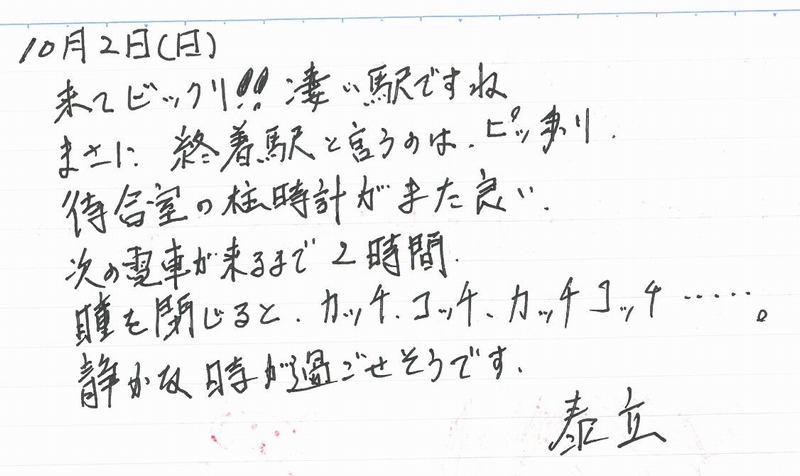 10月2日(日)
来てビックリ!! 凄い駅ですね
まさに 終着駅と言うのは、ピッタリ.
待合室の柱時計がまた良い.
次の電車が来るまで 2時間.
瞳を閉じると、カッチ、コッチ、カッチコッチ ・・・・・。
静かな時が過ごせそうです.
泰立